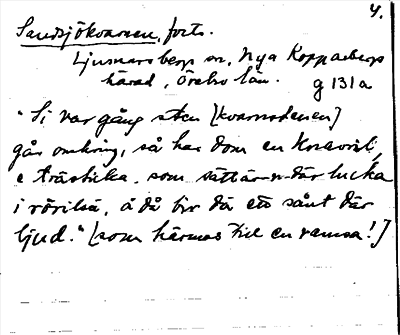 4.
Sandsjökvarnen, forts.
Ljusnarsbergs sn, Nya Kopparbergs
härad, Örebro län. g 131a
"Si var gång sten [kvarnstenen]
går omkring, så har dom en
e trästicka, som sätt än där lucka
i rörilsä, å då bir dä ett sånt där
ljud." [som härmas till en ramsa!]